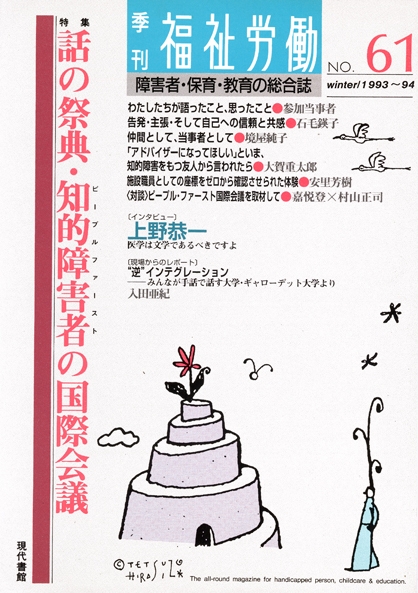 季刊
福祉労働
障害者・保育・教育の総合誌
NO. 61
winter/1993～94
特集
話の祭典・知的障害者の国際会議
ピープルファースト
わたしたちが語ったこと、思ったこと●参加当事者
告発・主張・そして自己への信頼と共感●石毛鍈子
仲間として、当事者として●境屋純子
「アドバイザーになってほしい」といま、
知的障害をもつ友人から言われたら●大賀重太郎
施設職員としての座標をゼロから確認させられた体験●安里芳樹
〈対談〉ピープル・ファースト国際会議を取材して●嘉悦登×村山正司
〔インタビュー〕
上野恭一
医学は文学であるべきですよ
〔現場からのレポート〕
“逆”インテグレーション
——みんなが手話で話す大学・ギャローデット大学より
入田亜紀
現代書館
©TETSUZO HIRASILK
The all-round magazine for handicapped person, childcare & education.